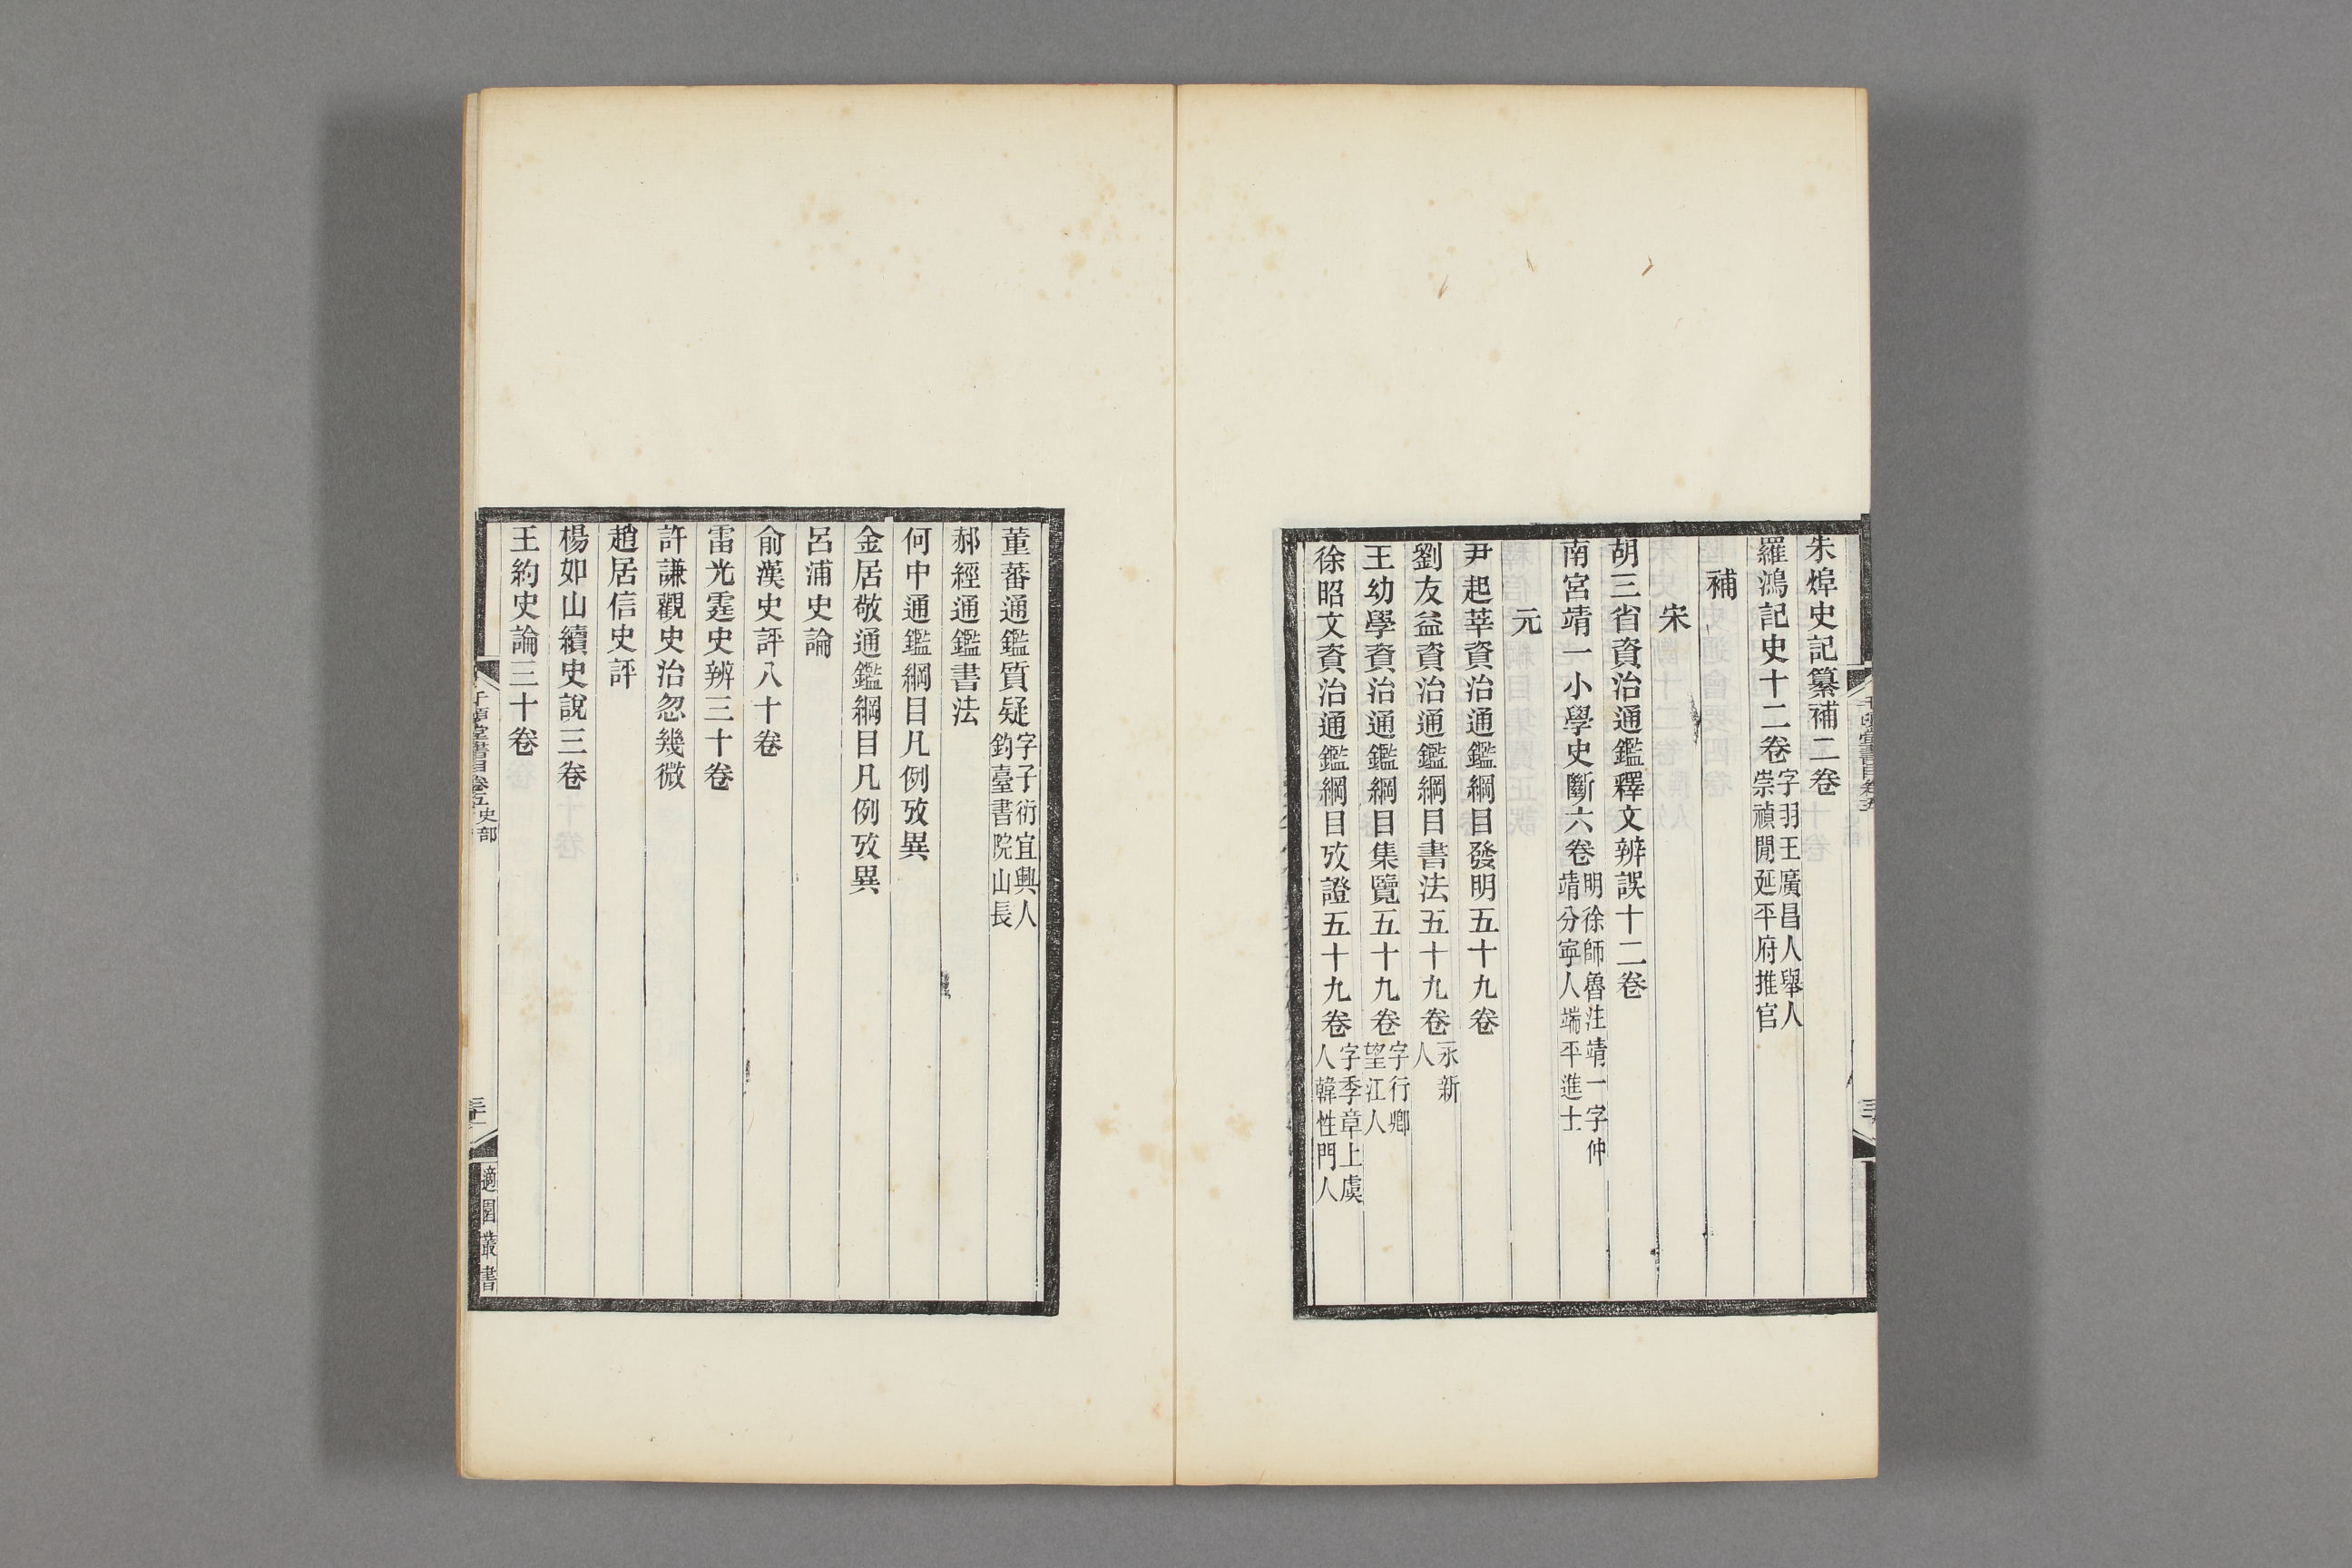 朱焯史記纂補二卷
羅鴻記史十二卷字羽王廣昌人舉人
崇禎閒延平府推官
補
宋
胡三省資治通鑑釋文辨誤十二卷
南宮靖一小學史斷六卷明徐師魯注靖一字仲
靖分寧人端平進士
元
尹起莘資治通鑑綱目發明五十九卷
劉友益資治通鑑綱目書法五十九卷永新
人
王幼學資治通鑑綱目集覽五十九卷字行卿
望江人
徐昭文資治通鑑綱目攷證五十九卷字季章上虞
人韓性門人
董蕃通鑑質疑字子衍宜興人
鈞臺書院山長
郝經通鑑書法
何中通鑑綱目凡例攷異
金居敬通鑑綱目凡例攷異
呂浦史論
俞漢史評八十卷
雷光霆史辨三十卷
許謙觀史治忽幾微
趙居信史評
楊如山續史說三卷
王約史論三十卷
千頃堂書目卷五史部
適園叢書